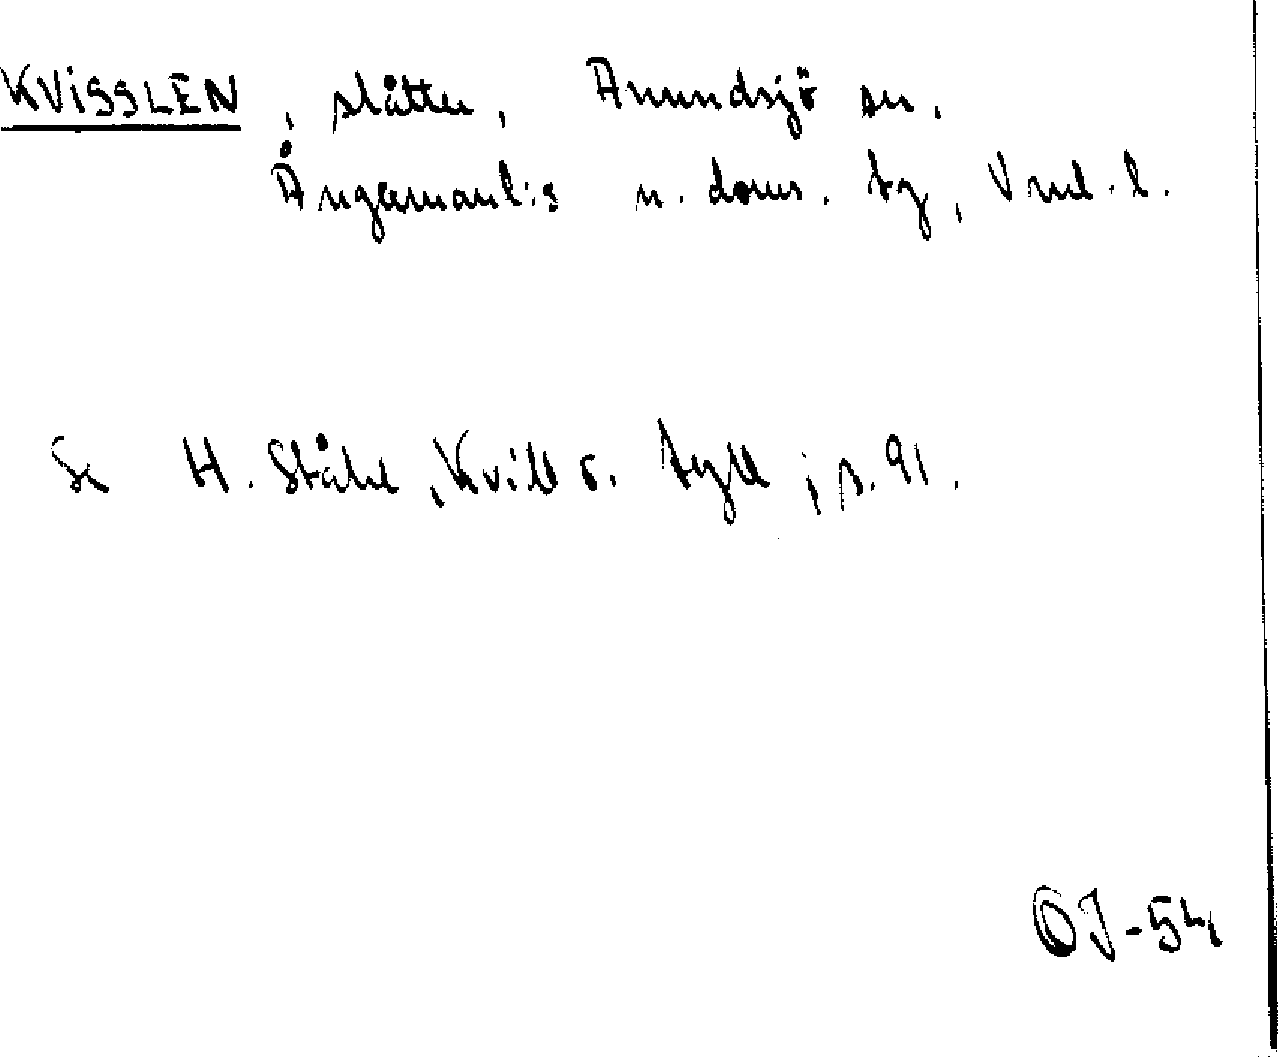 KVISSLEN, slåtter, Anundsjö sn.
Ångermanl:s n. doms. tg, Vnrl. l.
Se H. Ståhl, Kvill o. tyll, s. 91.
OJ-54